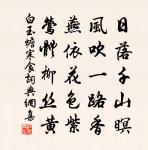 日落千山暝
風吹一路香
燕依花色紫
鶯戀柳絲黃
白玉蟾寒食詞典網集